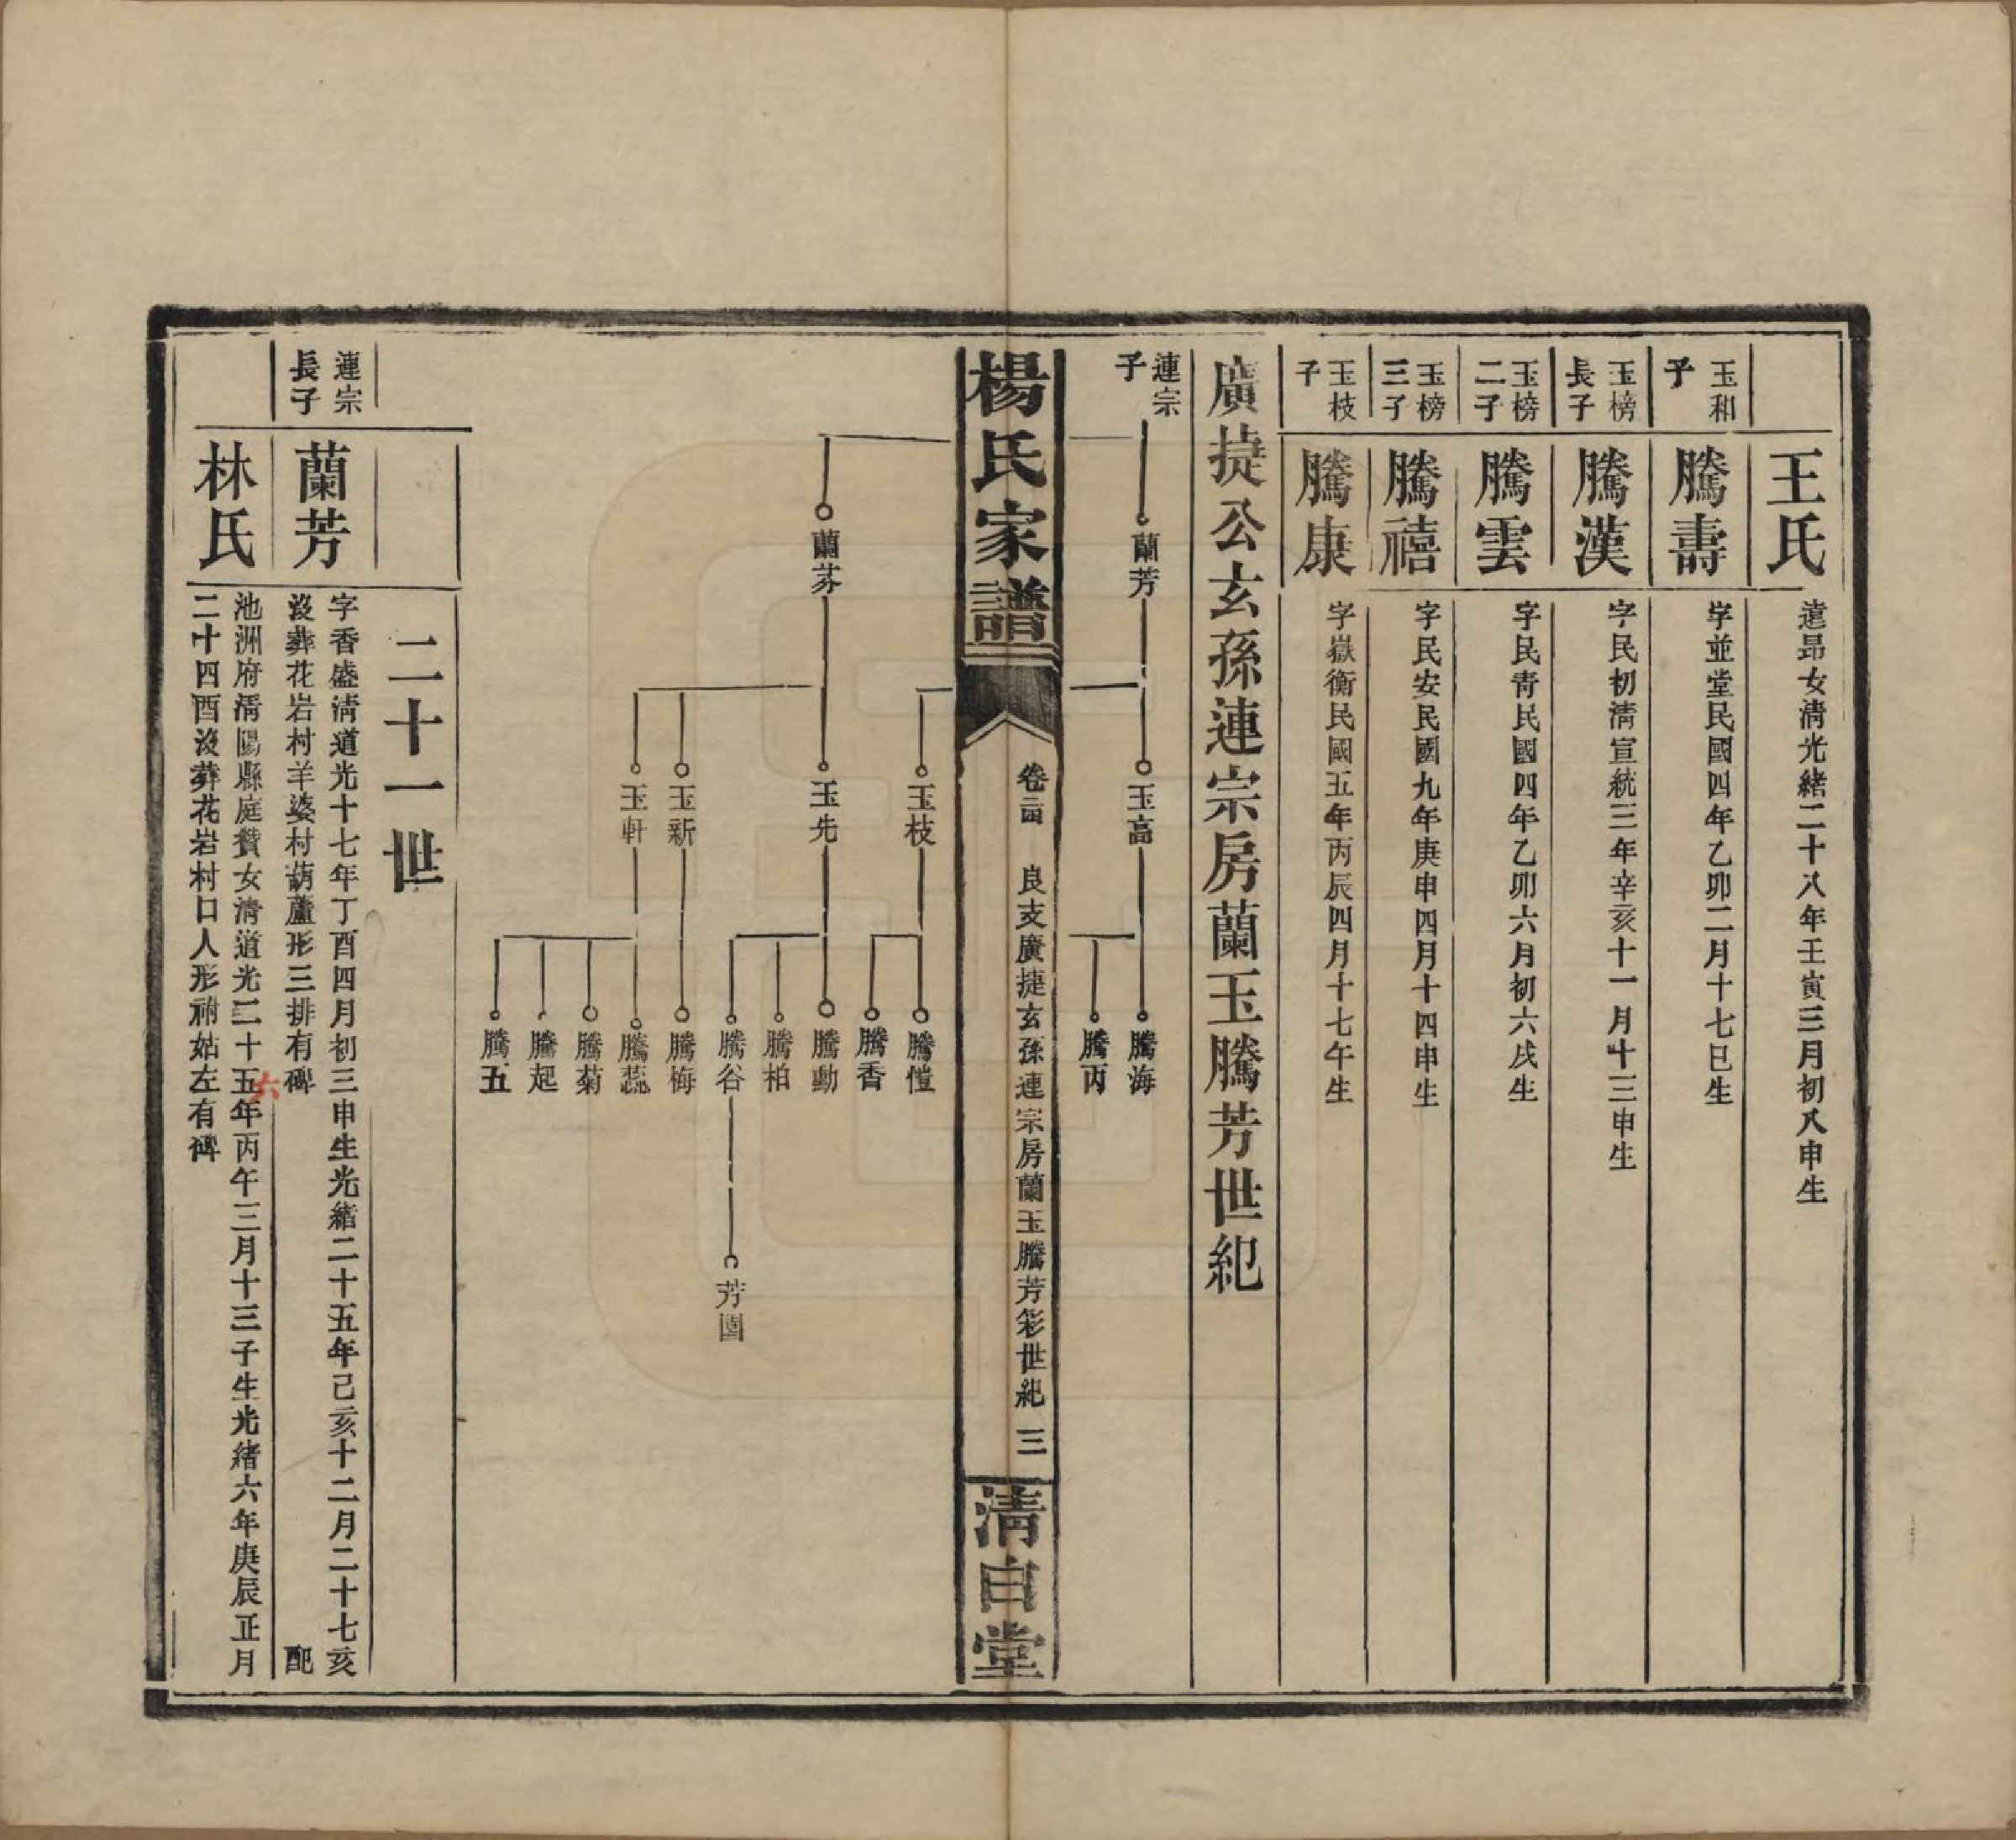 王氏
遠昂女清光緒二十八年壬寅三月初八申生
玉和
子
騰壽
字並堂民國四年乙卯二月十七巳生
玉榜
長子
騰漢
字民初清宣統三年辛亥十一月十三申生
玉榜
二子
騰雲
字民青民國四年乙卯六月初六戌生
玉榜
三子
騰禧
字民安民國九年庚申四月十四申生
玉枝
子
騰康
字嶽衡民國五年丙辰四月十七午生
廣捷公玄孫連宗房蘭玉騰芳世紀
連宗
子
蘭芳
玉高
騰海
騰丙
楊氏家譜
卷二十四
良支廣捷玄孫連宗房蘭玉騰芳彩世紀
三
清白堂
玉枝
騰愷
騰香
蘭芬
玉先
騰勳
騰柏
騰谷
芳園
玉新
騰梅
玉軒
騰蕊
騰菊
騰起
騰五
二十一世
連宗
長子
蘭芳
字香盛清道光十七年丁酉四月初三申生光緒二十五年己亥十二月二十七亥
沒葬花岩村羊婆村葫蘆形三排有碑
配
林氏
池洲府清陽縣庭贊女清道光二十五年丙午三月十三子生光緒六年庚辰正月
六
二十四酉沒葬花岩村口人形祔姑左有碑